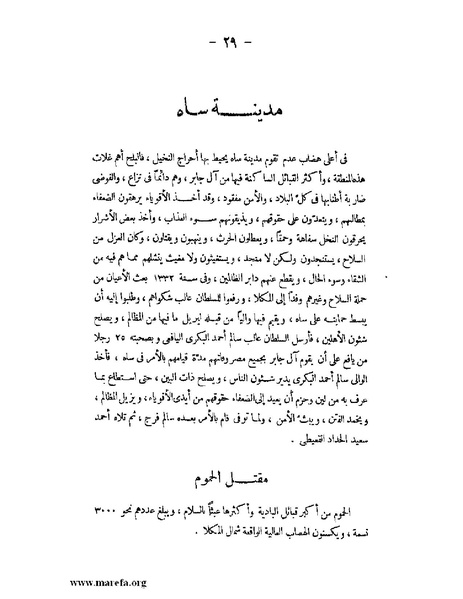 — ٢٩ —
مدينة ساه
فى أعلى هضاب عدم تقوم مدينة ساه يحيط بها أحراج النخيل ، فالبلح أهم غلات
هذه المنطقة ، وأكثر القبائل الساكنة فيها من آل جابر ، وهم دائماً فى نزاع ، والفوضى
ضاربة أطنابها فى كل البلاد ، والأمن مفقود ، وقد أخذ الأقوياء يرهقون الضعفاء
بمطالبهم ، ويتعدون على حقوقهم ، ويذيقونهم سوء العذاب ، وأخذ بعض الأشرار
يحرقون النخل سفاهة وحمقاً ، ويعطلون الحرث ، وينهبون ويقتلون ، وكان العزل من
السلاح ، يستنجدون ولكن لا منجد ، ويستغيثون ولا مغيث ينشلهم مما هم فيه من
الشقاء وسوء الحال ، ويقطع عنهم دابر الظالمين ، وفى سنة ١٣٣٢ بعث الأعيان من
حملة السلاح وغيرهم وفداً إلى المكلا ، ورفعوا للسلطان غالب شكواهم ، وطلبوا إليه أن
يبسط حمايته على ساه ، ويقيم فيها والياً من قبله ليزيل ما فيها من المظالم ، ويصلح
شئون الأهلين ، فأرسل السلطان غالب سالم أحمد البكرى اليافعى وبصحبته ٢٥ رجلا
من يافع على أن يقوم آل جابر بجميع مصروفاتهم مدة قيامهم بالأمر فى ساه ، فأخذ
الوالى سالم أحمد البكرى يدير شئون الناس ، ويصلح ذات البين ، حتى استطاع بما
عرف به من لين وحزم أن يعيد إلى الضعفاء حقوقهم من أيدى الأقوياء ، ويزيل المظالم ،
ويخمد الفتن ، ويبث الأمن ، ولما توفى قام بالأمر بعده سالم فرج ، ثم تلاه أحمد
سعيد الحداد القعيطى .
مقتل الحموم
الحموم من أكبر قبائل البادية وأكثرها عبثاً بالسلام ، ويبلغ عددهم نحو ٣٠٠٠
نسمة ، ويسكنون الهضاب العالية الواقعة شمال المكلا
www.marefa.org